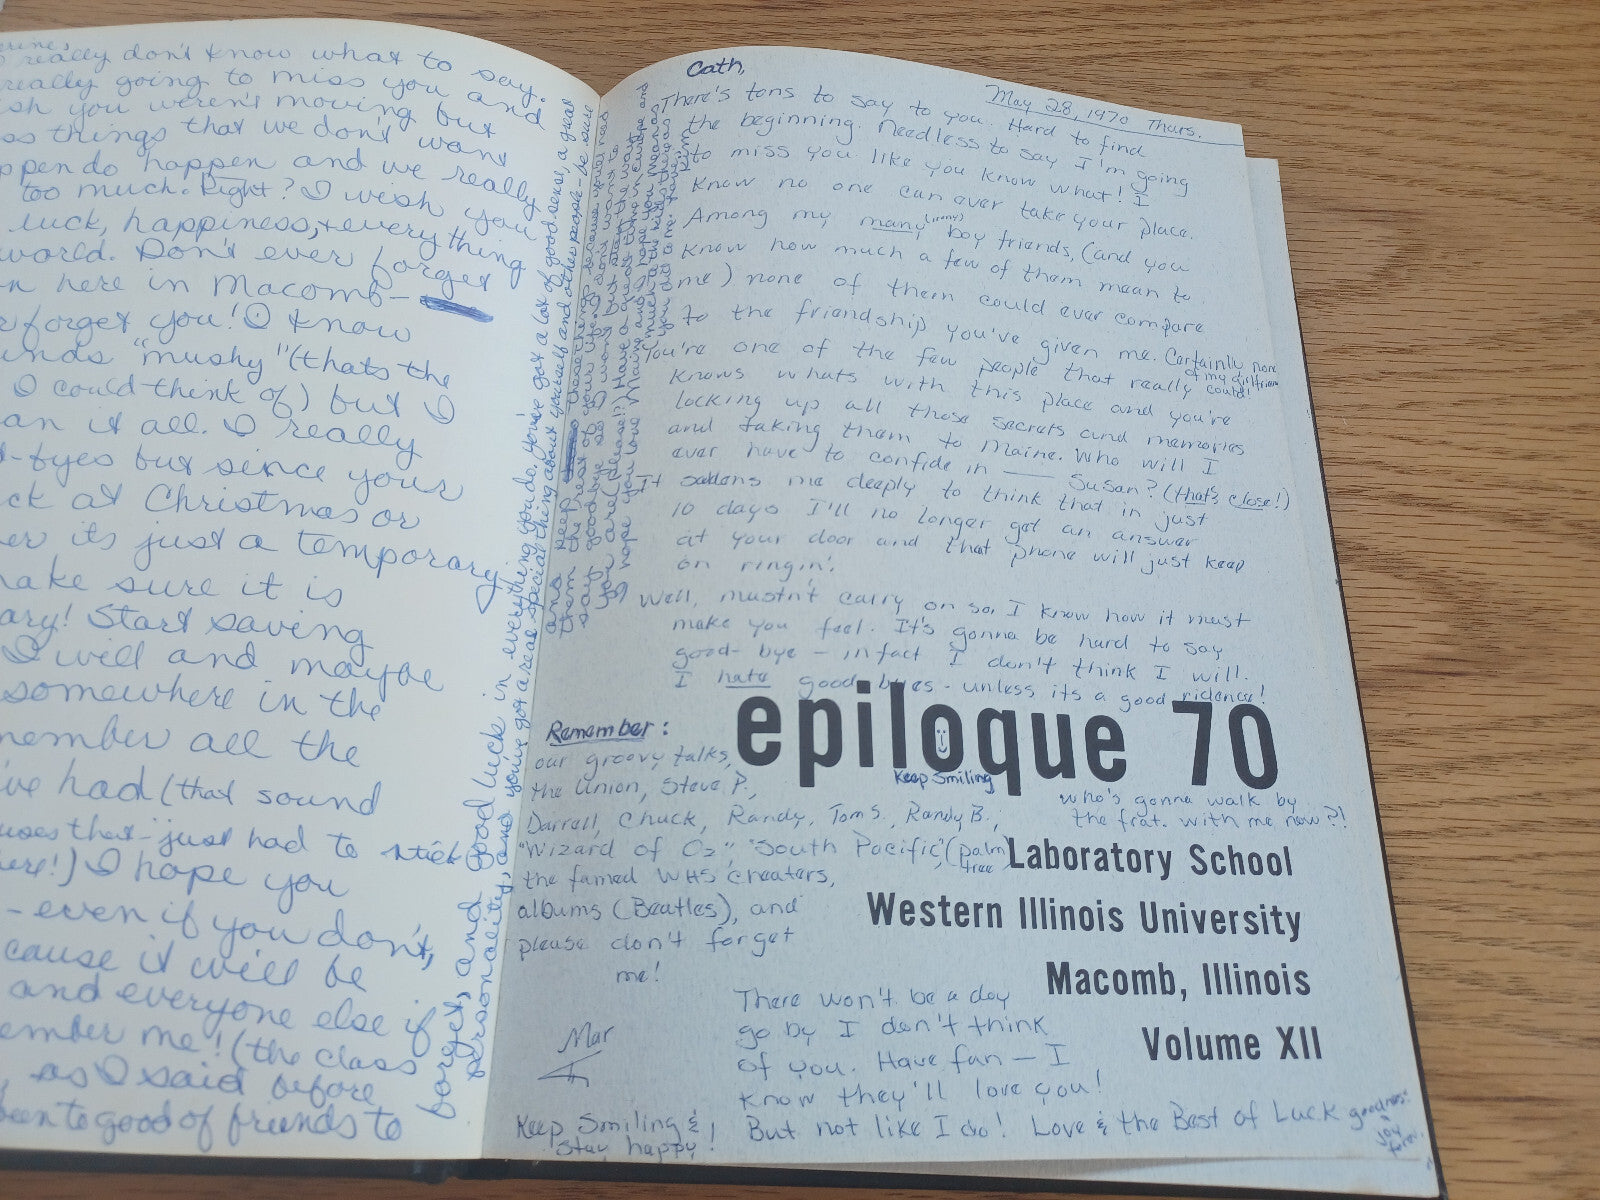 really don't know what to say.
really going to miss you and
you weren't moving but
things that we don't want
do happen and we really
too much. Right? I wish you
luck, happiness, + everything
world. Don't ever forget
here in Macomb-
forget you! I know
"mushy" (thats the
I could think of) but I
it all. I really
but since your
at Christmas or
its just a temporary
make sure it is
Start saving
I will and maybe
somewhere in the
all the
've had (that sound
that just had to stick
I hope you
- even if you don't,
cause it will be
and everyone else if
me! (the class
as I said before
to good of friends to
forget, and Good luck in everything you do. you've got a lot of good sense, a great
personality, and you've got a real special thing about yourself and other people - be sure
and keep these things because you'll need
them the rest of your life. I don't want to
say goodbye so I won't but stay the way
you are (please!!) Have a great time in Europe and
I hope you love Maine and I hope you mean as
much to the kids there as
you did to me. Love,
Kim
Cath,
May 28, 1970 Thurs.
There's tons to say to you. Hard to find
the beginning. Needless to say I'm going
to miss you like you know what! I
know no one can ever take your place.
Among my many (irony) boy friends, (and you
know how much a few of them mean to
me) none of them could ever compare
to the friendship you've given me. Certainly none
of my girlfriends could!
You're one of the few people that really
knows whats with this place and you're
locking up all those secrets and memories
and taking them to Maine. Who will I
ever have to confide in — Susan? (that's close!)
It saddens me deeply to think that in just
10 days I'll no longer get an answer
at your door and that phone will just keep
on ringin'.
Well, mustn't carry on so, I know how it must
make you feel. It's gonna be hard to say
good-bye - infact I don't think I will.
I hate good byes - unless its a good ridence!
epiloque 70
Keep Smiling
Remember:
our groovy talks,
the Union, Steve P.,
Darrell, Chuck, Randy, Tom S., Randy B.,
"Wizard of Oz", "South Pacific", (palm
tree)
the famed WHS Creaters,
albums (Beatles), and
please don't forget
me!
who's gonna walk by
the frat. with me now?!
Laboratory School
Western Illinois University
Macomb, Illinois
Volume XII
There won't be a day
go by I don't think
of you. Have fun — I
know they'll love you!
But not like I do! Love & the Best of Luck
Mar
Keep Smiling &
Stay happy!